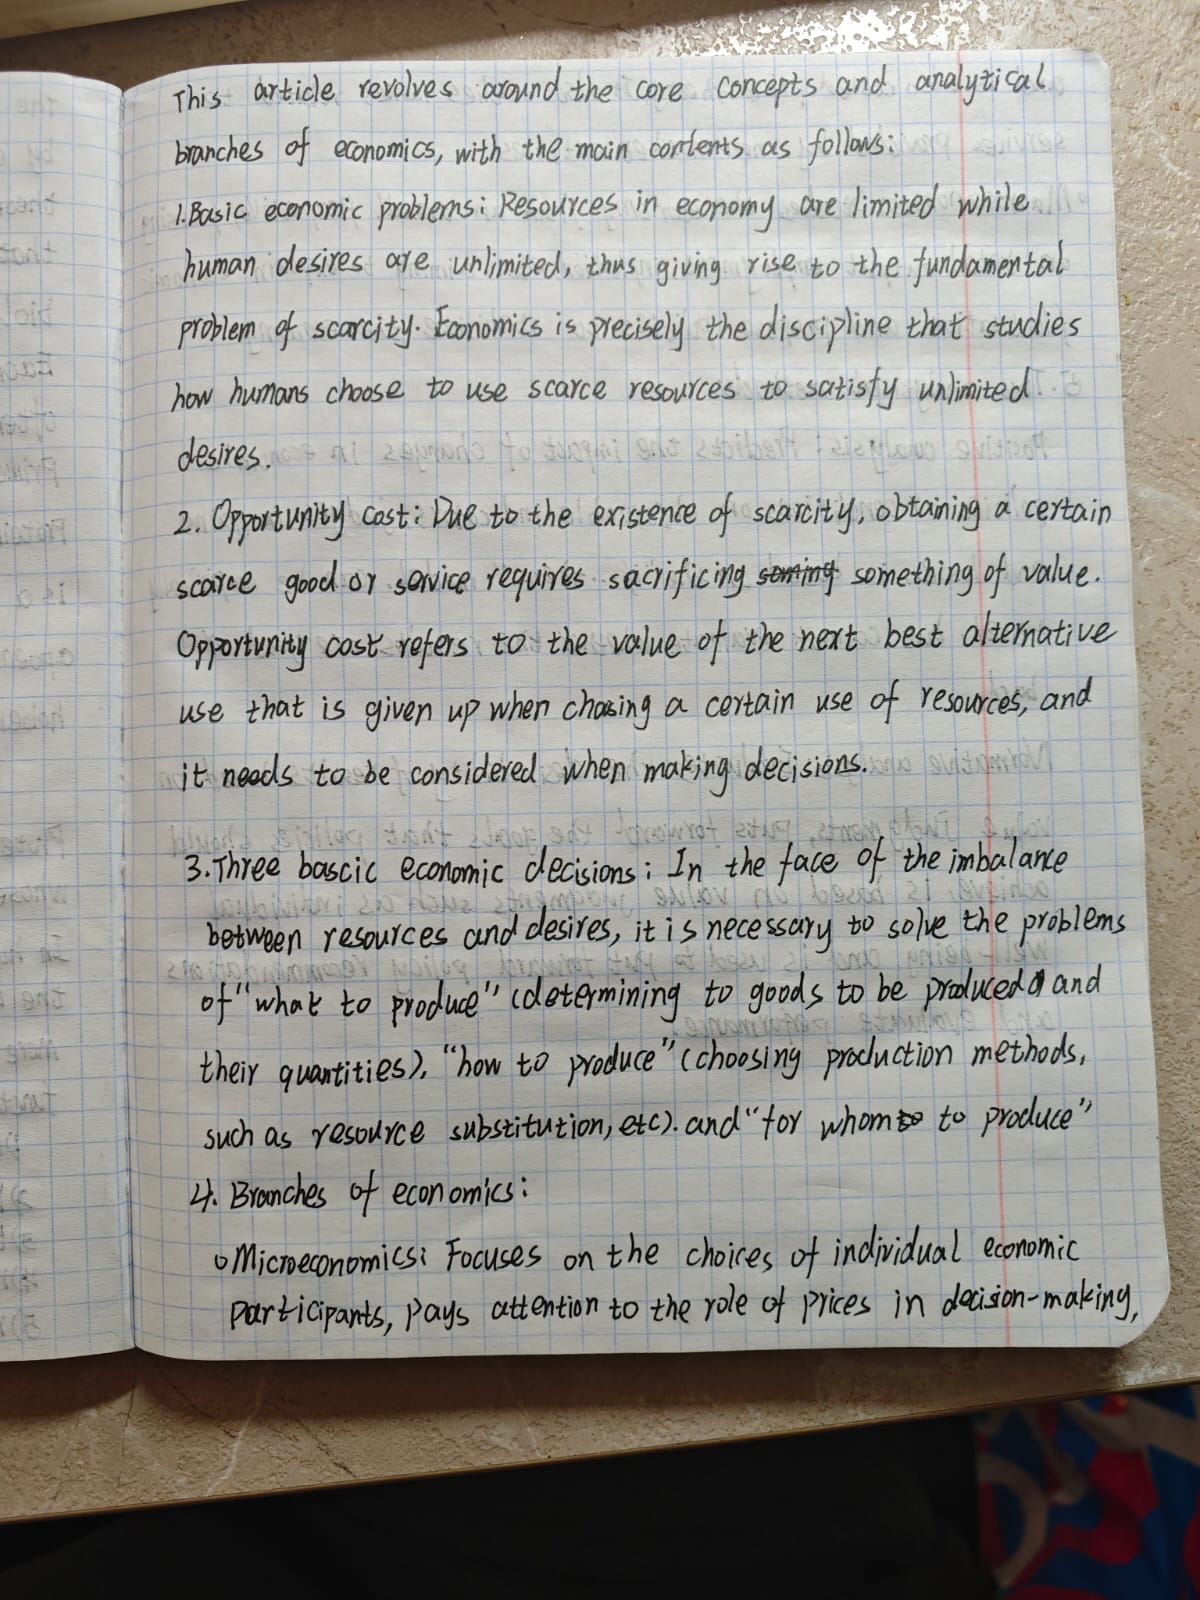 This article revolves around the core concepts and analytical
branches of economics, with the main contents as follows:
1.Basic economic problems: Resources in economy are limited while
human desires are unlimited, thus giving rise to the fundamental
problem of scarcity. Economics is precisely the discipline that studies
how humans choose to use scarce resources to satisfy unlimited
desires.
2. Opportunity cost: Due to the existence of scarcity, obtaining a certain
scarce good or service requires sacrificing something of value.
Opportunity cost refers to the value of the next best alternative
use that is given up when chosing a certain use of resources, and
it needs to be considered when making decisions.
3.Three bascic economic decisions: In the face of the imbalance
between resources and desires, it is necessary to solve the problems
of "what to produce" (determining to goods to be produced and
their quantities), "how to produce" (choosing production methods,
such as resource substitution, etc). and "for whom to produce"
4. Branches of economics:
o Microeconomics: Focuses on the choices of individual economic
participants, pays attention to the role of prices in decision-making,